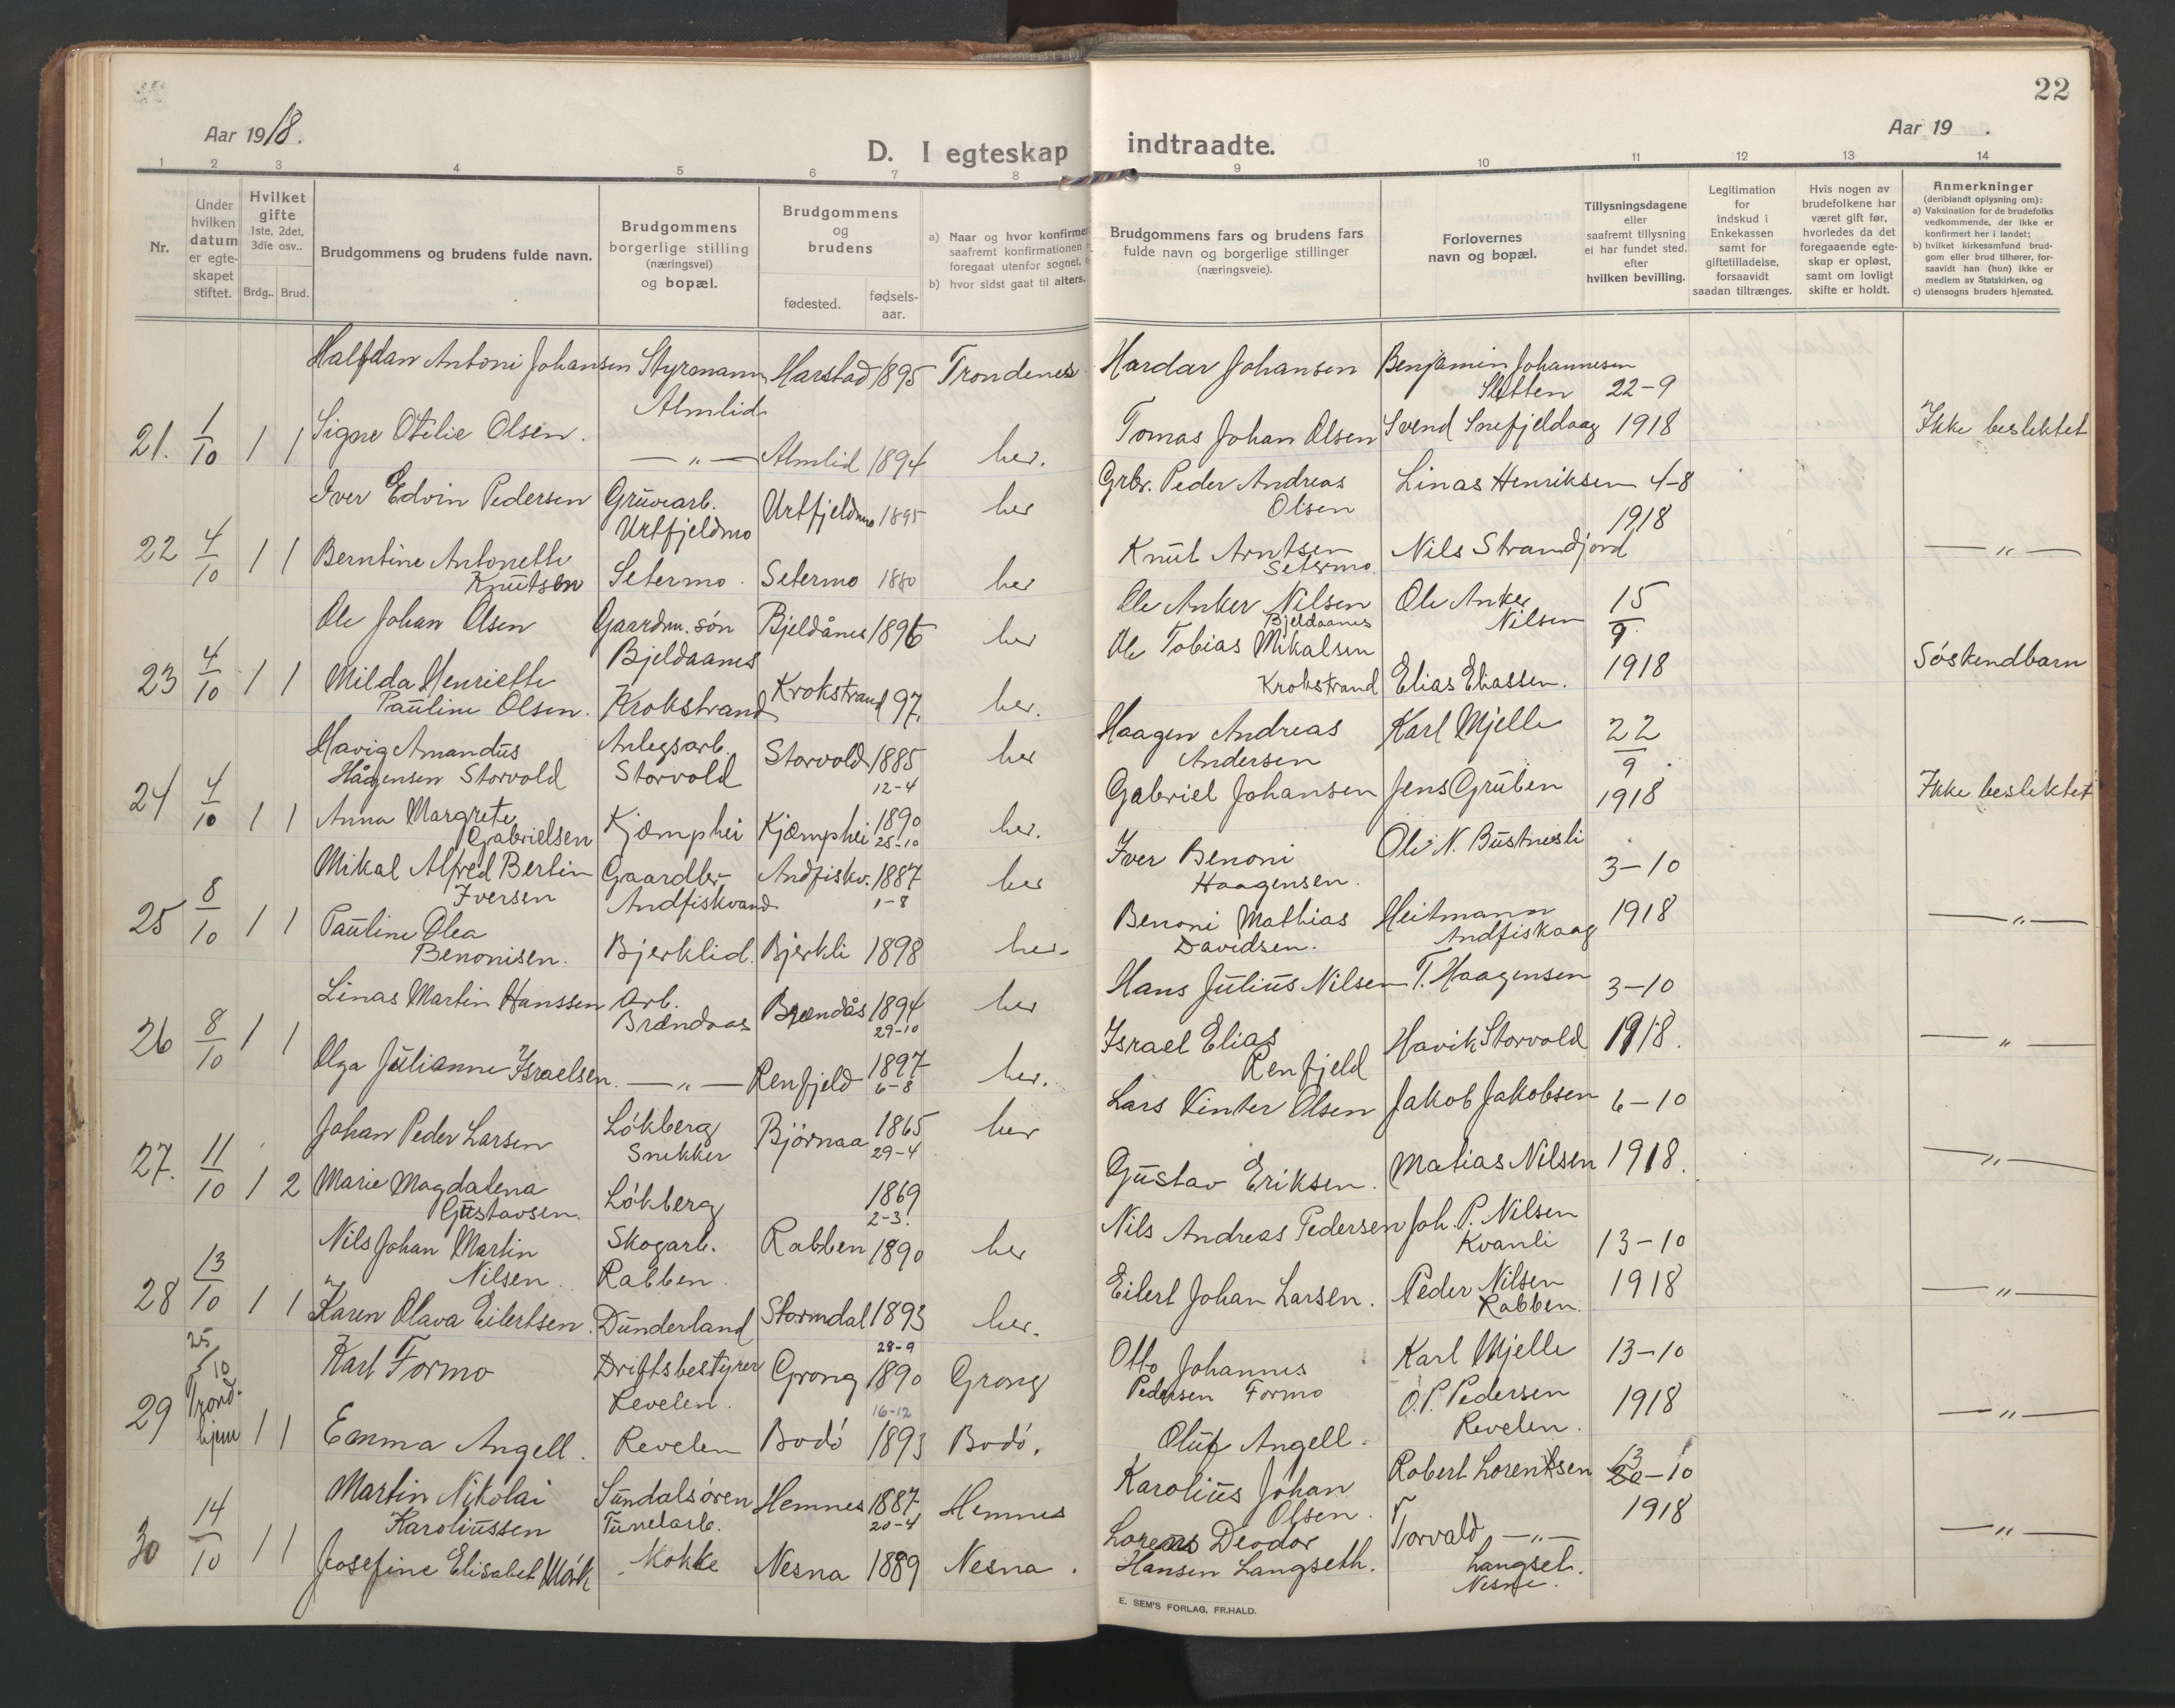 22
Aar 1918.
Aar 19 .
D. I egteskap indtraadte.
1 2 3 4 5 6 7 8 9 10 11 12 13 14
Nr.
Under hvilken datum er egteskapet stiftet.
Hvilket gifte 1ste, 2det, 3die osv..
Brdg.. Brud.
Brudgommens og brudens fulde navn.
Brudgommens borgerlige stilling (næringsvei) og bopæl.
Brudgommens og brudens
fødested. fødselsaar.
a) Naar og hvor konfirmer
saafremt konfirmationen
foregaat utenfor sognet,
b) hvor sidst gaat til alters.
Brudgommens fars og brudens fars
fulde navn og borgerlige stillinger
(næringsveie).
Forlovernes
navn og bopæl.
Tillysningsdagene
eller
saafremt tillysning
ei har fundet sted,
efter
hvilken bevilling.
Legitimation
for
indskud i
Enkekassen
samt for
giftetilladelse,
forsaavidt
saadan tiltrænges.
Hvis nogen av
brudefolkene har
været gift før,
hvorledes da det
foregaaende egte-
skap er opløst,
samt om lovligt
skifte er holdt.
Anmerkninger
(deriblandt oplysning om):
a) Vaksination for de brudefolks
vedkommende, der ikke er
konfirmert her i landet;
b) hvilket kirkesamfund brud-
gom eller brud tilhører, for-
saavidt han (hun) ikke er
medlem av Statskirken, og
c) utensogns bruders hjemsted.
Halfdan Antoni Johansen Styrmann Harstad 1895 Trondenes Hardar Johansen Benjamin Johannesen
Almlid Sletten 22-9
21. 1/10 1 1 Signe Otilie Olsen. —„— Almlid 1894 her. Tomas Johan Olsen Svend Snefjeldaag 1918 Ikke beslektet
Iver Edvin Pedersen Gruvearb. Urtfjeldmo 1895 her Grbr. Peder Andreas Linas Henriksen 4-8
Urtfjeldmo Olsen 1918
22 4/10 1 1 Berntine Antonette Knutsen Setermo. Setermo 1880 her Knut Arntsen Setermo. Nils Strandjord —„—
Ole Johan Olsen Gaardm. søn Bjeldånes 1896 her Ole Anker Nilsen Bjeldaanes Ole Anker Nilsen 15/9
Bjeldaanes
23 4/10 1 1 Milda Henriette Pauline Olsen. Krokstrand Krokstrand 97. her. Ole Tobias Mikalsen Krokstrand Elias Eliassen. 1918 Søskendbarn
Havig Amandus Hågensen Storvold Anlegsarb. Storvold Storvold 1885 12-4 her Haagen Andreas Andersen Karl Mjelle 22/9
24 4/10 1 1 Anna Margrete Gabrielsen Kjæmphei Kjæmphei 1890 25-10 her. Gabriel Johansen Jens Gruben 1918 Ikke beslektet
Mikal Alfred Bertin Iversen Gaardbr. Andfiskvand Andfiskv. 1887 1-8 her Iver Benoni Haagensen. Ole N. Bustnesli 3-10
25 8/10 1 1 Pauline Olea Benonisen. Bjerklid. Bjerkli 1898 her. Benoni Mathias Davidsen. Heitmann Andfiskaag 1918 —„—
Linas Martin Hanssen Arb. Brændaas Brændås 1894 29-10 her Hans Julius Nilsen T. Haagensen 3-10
26 8/10 1 1 Olga Julianne Israelsen. —„— Renfjeld 1897 6-8 her. Israel Elias Renfjeld Havik Storvold 1918. —„—
Johan Peder Larsen Løkberg Snekker Bjørnaa 1865 29-4 her Lars Vinter Olsen Jakob Jakobsen 6-10
27. 11/10 1 2 Marie Magdalena Gustavsen. Løkberg 1869 2-3. Gustav Eriksen. Matias Nilsen 1918. —„—
Nils Johan Martin Nilsen. Skogarb. Rabben. Rabben 1890 her Nils Andreas Pedersen Joh. P. Nilsen Kvanli 13-10
28 13/10 1 1 Karen Olava Eilertsen. Dunderland Stormdal 1893 her. Eilert Johan Larsen. Peder Nilsen Rabben. 1918 —„—
Karl Formo Driftsbestyrer Revelen. Grong 28-9 1890 Grong Otto Johannes Pedersen Formo Karl Mjelle 13-10
29 25/10 Trondhjem 1 1 Emma Angell. Revelen Bodø 16-12 1893 Bodø. Oluf Angell. O.P. Pedersen Revelen. 1918 —„—
Martin Nikolai Karoliussen Sundalsøren Tunelarb. Hemnes 1887 20-4 Hemnes Karolius Johan Olsen. Robert Lorentsen 13-10
30 14/10 1 1 Josefine Elisabet Mørk Mokke Nesna 1889 Nesna. Lorens Deodor Hansen Langseth. Torvald —„— Langset. Nesne. 1918 —„—
E. SEM'S FORLAG, FR.HALD.